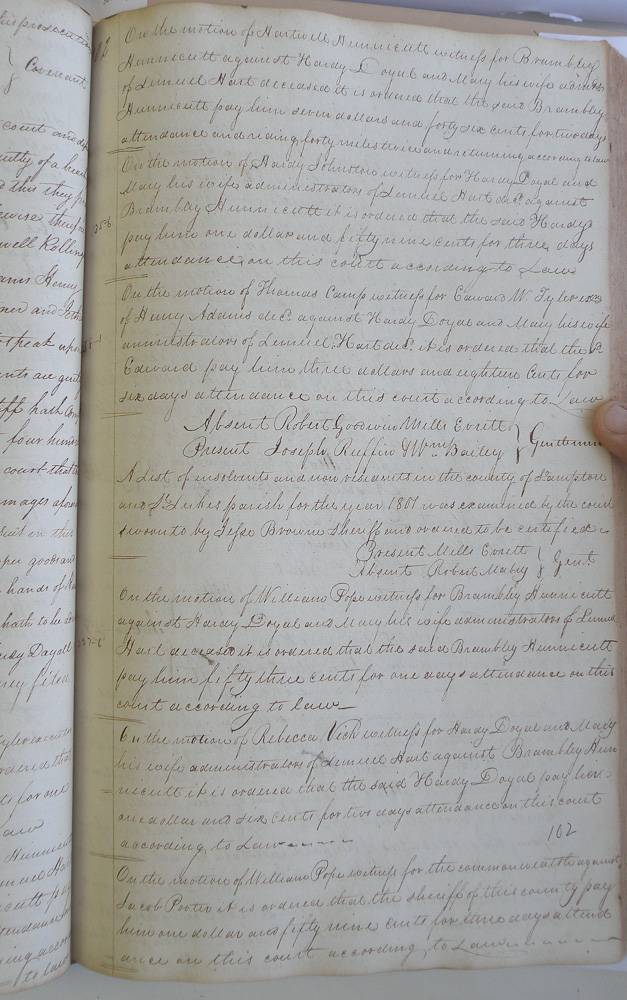 On the motion of Hartwell Hunnicutt witness for Brambley
Hunnicutt against Hardy Doyal and Mary his wife admrs
of Lemuel Hart deceased it is ordered that the said Brambley
Hunnicutt pay him seven dollars and forty six cents for two days
attendance and riding forty miles twice and returning according to law
On the motion of Hardy Johnston witness for Hardy Doyal and
Mary his wife administrators of Lemuel Hart decd against
Brambley Hunnicutt it is ordered that the said Hardy
pay him one dollar and fifty nine cents for three days
attendance on this court according to Law
On the motion of Thomas Camp witness for Edward W. Tyler exor
of Henry Adams decd against Hardy Doyal and Mary his wife
administrators of Lemuel Hart decd it is ordered that the sd
Edward pay him three dollars and eighteen Cents for
six days attendance on this court according to Law
Absent Robert Goodwin Mills Everitt
Present Joseph Ruffin & Wm Bailey } Gentlemen
A List of insolvents and non residents in the county of Sampton
and St Lukes parish for the year 1801 was examined by the court
sworn to by Jesse Browne Sheriff and ordered to be certified
Present Mills Everitt
Absent Robert Mabry } Gent.
On the motion of William Pope witness for Brambley Hunnicutt
against Hardy Doyal and Mary his wife administrators of Lemuel
Hart deceased it is ordered that the said Brambley Hunnicutt
pay him fifty three cents for one days attendance on this
court according to law
On the motion of Rebecca Vick witness for Hardy Doyal and Mary
his wife administrators of Lemuel Hart against Brambley Hun
nicutt it is ordered that the said Hardy Doyal pay her
one dollar and six cents for two days attendance on this court
according to Law
102
On the motion of William Pope witness for the commonwealth against
Jacob Porter it is ordered that the sheriff of this county pay
him one dollar and fifty nine cents for three days attend
ance on this court according to Law